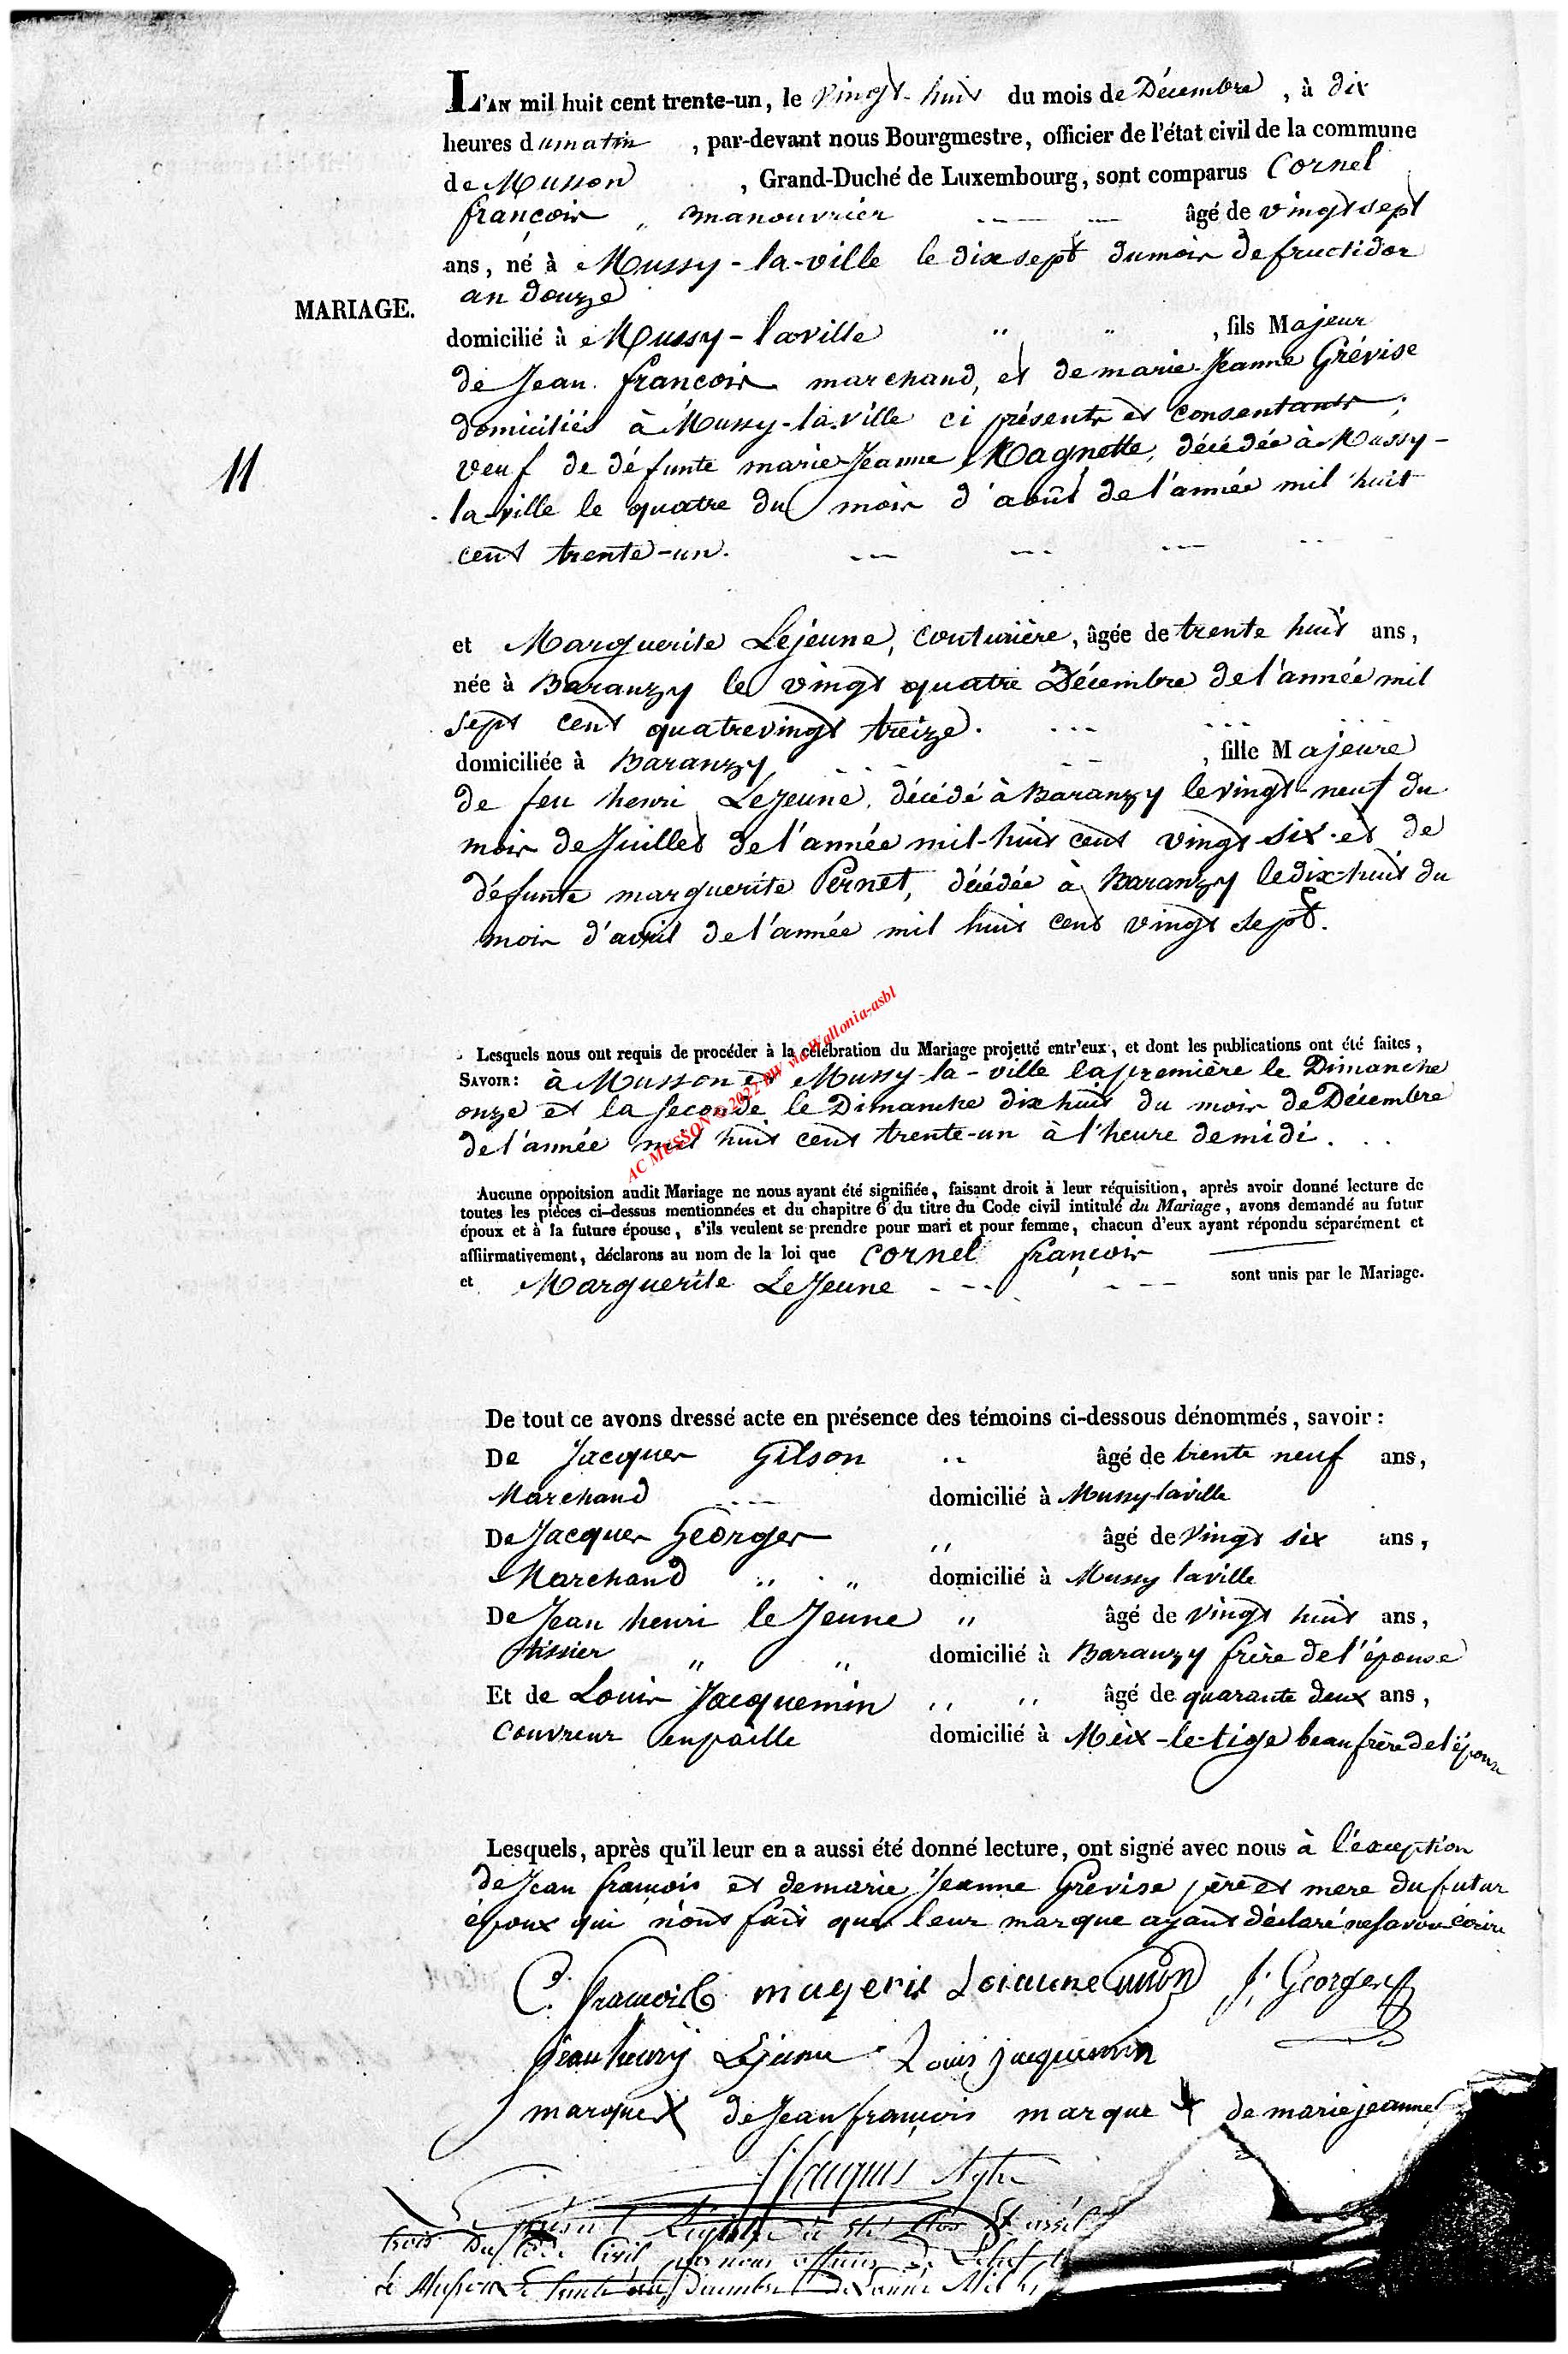 L'AN mil huit cent trente-un, le vingt-huit du mois de Décembre, à dix
heures du matin, par-devant nous Bourgmestre, officier de l'état civil de la commune
de Musson, Grand-Duché de Luxembourg, sont comparus Cornel
françois, manouvrier âgé de vingt sept
ans, né à Mussy-la-ville le dix sept du mois de fructidor
an douze
MARIAGE.
domicilié à Mussy-laville " " , fils Majeur
de Jean françois marchand, et de marie Jeanne Grévise
domiciliés à Mussy-la-ville ci présents et consentants;
11
veuf de défunte marie Jeanne Magnette, décédée à Mussy-
la-ville le quatre du mois d'août de l'année mil huit
cent trente-un.
et Marguerite Lejeune, couturière, âgée de trente huit ans,
née à Baranzy le vingt quatre Décembre de l'année mil
sept cent quatrevingt treize.
domiciliée à Baranzy, fille Majeure
de feu henri LeJeune, décédé à Baranzy le vingt-neuf du
mois de Juillet de l'année mil-huit cent vingt six et de
défunte marguerite Pernet, décédée à Baranzy le dix-huit du
mois d'avril de l'année mil huit cent vingt sept.
AC MUSSON © 2022 PW via Wallonia-asbl
Lesquels nous ont requis de procéder à la célébration du Mariage projetté entr'eux, et dont les publications ont été faites,
SAVOIR: à Musson et Mussy-la-ville la première le Dimanche
onze et la seconde le Dimanche dix huit du mois de Décembre
de l'année mil huit cent trente-un à l'heure de midi.
Aucune oppoitsion audit Mariage ne nous ayant été signifiée, faisant droit à leur réquisition, après avoir donné lecture de
toutes les pièces ci-dessus mentionnées et du chapitre 6 du titre du Code civil intitulé du Mariage, avons demandé au futur
époux et à la future épouse, s'ils veulent se prendre pour mari et pour femme, chacun d'eux ayant répondu séparément et
affirmativement, déclarons au nom de la loi que Cornel françois
et Marguerite LeJeune sont unis par le Mariage.
De tout ce avons dressé acte en présence des témoins ci-dessous dénommés, savoir:
De Jacques Gilson " âgé de trente neuf ans,
Marchand domicilié à Mussy-laville
De Jacques Georges " âgé de vingt six ans,
Marchand " " domicilié à Mussy laville
De Jean henri le Jeune " âgé de vingt huit ans,
tissier " " domicilié à Baranzy frère de l'épouse
Et de Louis Jacquemin " " âgé de quarante deux ans,
couvreur en paille domicilié à Meix-le-tige beaufrère de l'épouse
Lesquels, après qu'il leur en a aussi été donné lecture, ont signé avec nous à l'éxception
de Jean françois et de marie Jeanne Grévise père et mere du futur
époux qui n'ont fait que leur marque ayant déclaré ne savoir écrire
C. francois mageris Leiaune J. Georges
Jean henry Lejeune Louis jacquemin
marque X de Jean françois marque X de marie jeanne